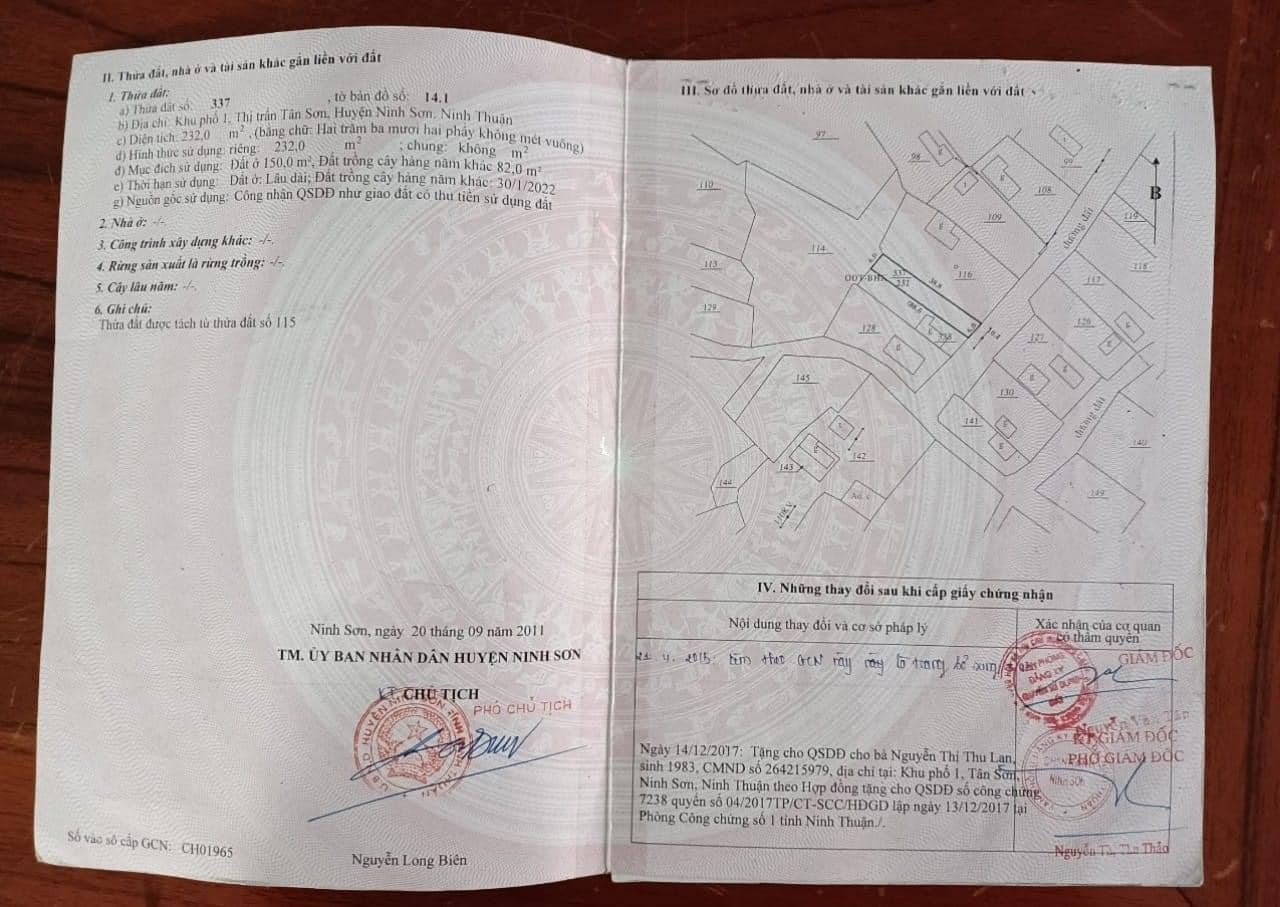 II. Thửa đất, nhà ở và tài sản khác gắn liền với đất
1. Thửa đất:
a) Thửa đất số: 337 , tờ bản đồ số: 14.1
b) Địa chỉ: Khu phố 1, Thị trấn Tân Sơn, Huyện Ninh Sơn, Ninh Thuận
c) Diện tích: 232,0 m², (bằng chữ: Hai trăm ba mươi hai phẩy không mét vuông)
d) Hình thức sử dụng: riêng: 232,0 m² ; chung: không m²
đ) Mục đích sử dụng: Đất ở 150,0 m², Đất trồng cây hàng năm khác 82,0 m²
e) Thời hạn sử dụng: Đất ở: Lâu dài; Đất trồng cây hàng năm khác: 30/1/2022
g) Nguồn gốc sử dụng: Công nhận QSDĐ như giao đất có thu tiền sử dụng đất
2. Nhà ở: -/-.
3. Công trình xây dựng khác: -/-.
4. Rừng sản xuất là rừng trồng: -/-.
5. Cây lâu năm: -/-.
6. Ghi chú:
Thửa đất được tách từ thửa đất số 115
Ninh Sơn, ngày 20 tháng 09 năm 2011
TM. ỦY BAN NHÂN DÂN HUYỆN NINH SƠN
KT. CHỦ TỊCH
PHÓ CHỦ TỊCH
Nguyễn Long Biên
Số vào sổ cấp GCN: CH01965
III. Sơ đồ thửa đất, nhà ở và tài sản khác gắn liền với đất
97
98
99
108
109
110
113
114
116
117
118
119
B
đường đất
337
232
338
126
127
128
129
130
140
141
142
143
144
145
149
đường đất
Ao. c
110KV
IV. Những thay đổi sau khi cấp giấy chứng nhận
Nội dung thay đổi và cơ sở pháp lý
Xác nhận của cơ quan
có thẩm quyền
GIÁM ĐỐC
Nguyễn Văn Tân
KT. GIÁM ĐỐC
PHÓ GIÁM ĐỐC
Ngày 14/12/2017: Tặng cho QSDĐ cho bà Nguyễn Thị Thu Lan,
sinh 1983, CMND số 264215979, địa chỉ tại: Khu phố 1, Tân Sơn,
Ninh Sơn, Ninh Thuận theo Hợp đồng tặng cho QSDĐ số công chứng
7238 quyển số 04/2017TP/CT-SCC/HĐGD lập ngày 13/12/2017 tại
Phòng Công chứng số 1 tỉnh Ninh Thuận./.